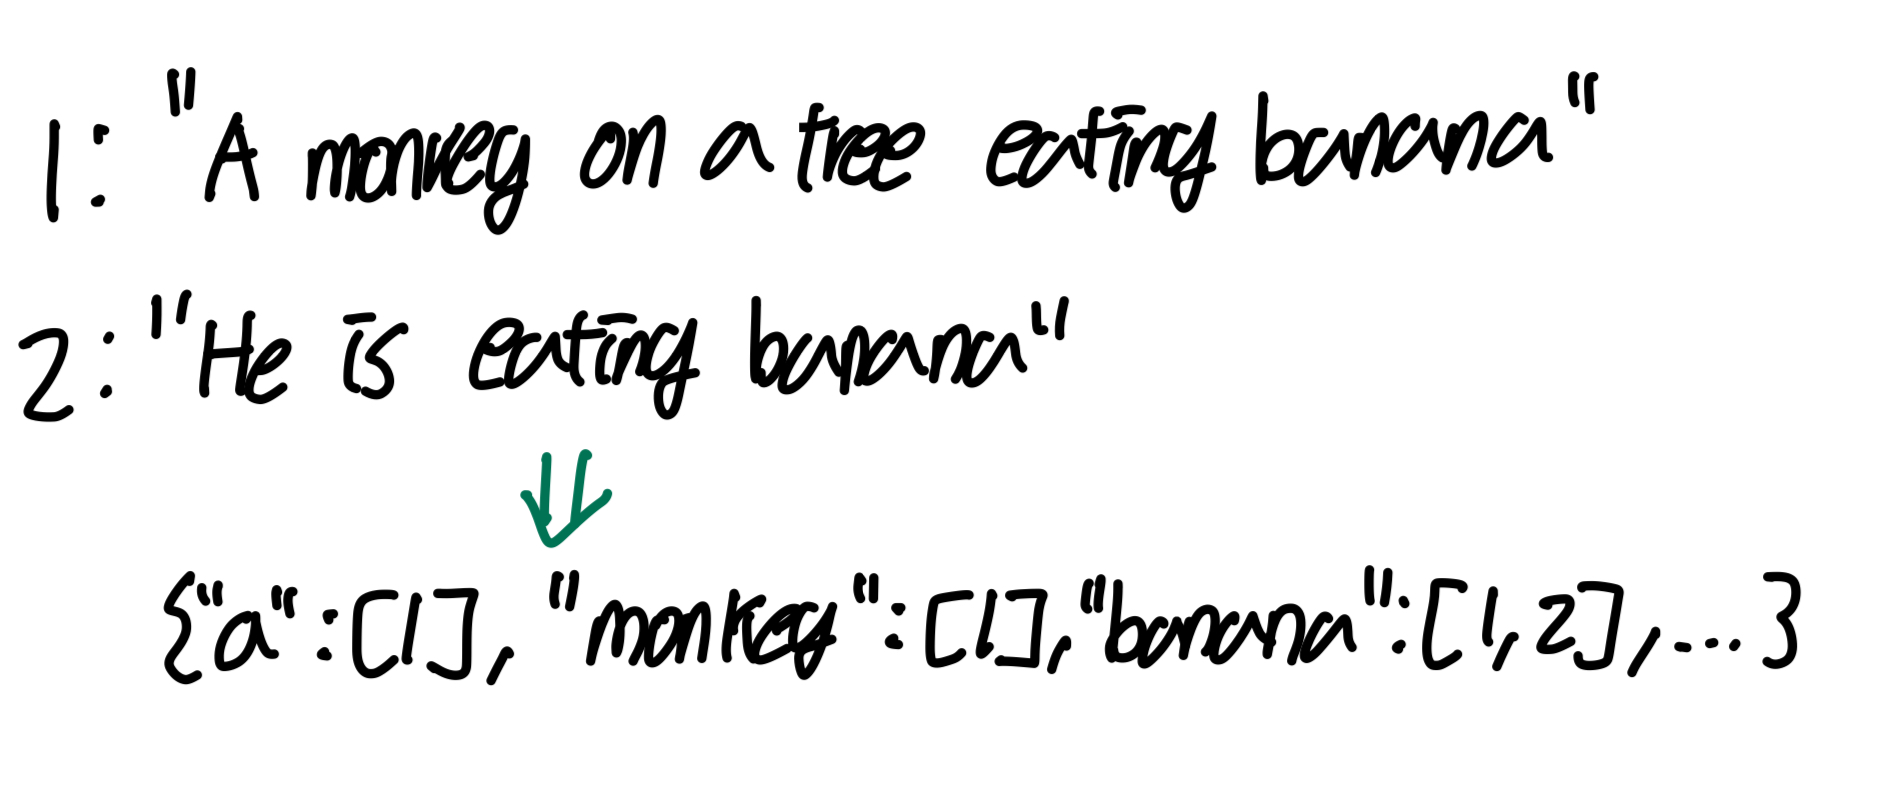 1: "A monkey on a tree eating banana"
2: "He is eating banana"
{"a":[1], "monkey":[1],"banana":[1,2],...}